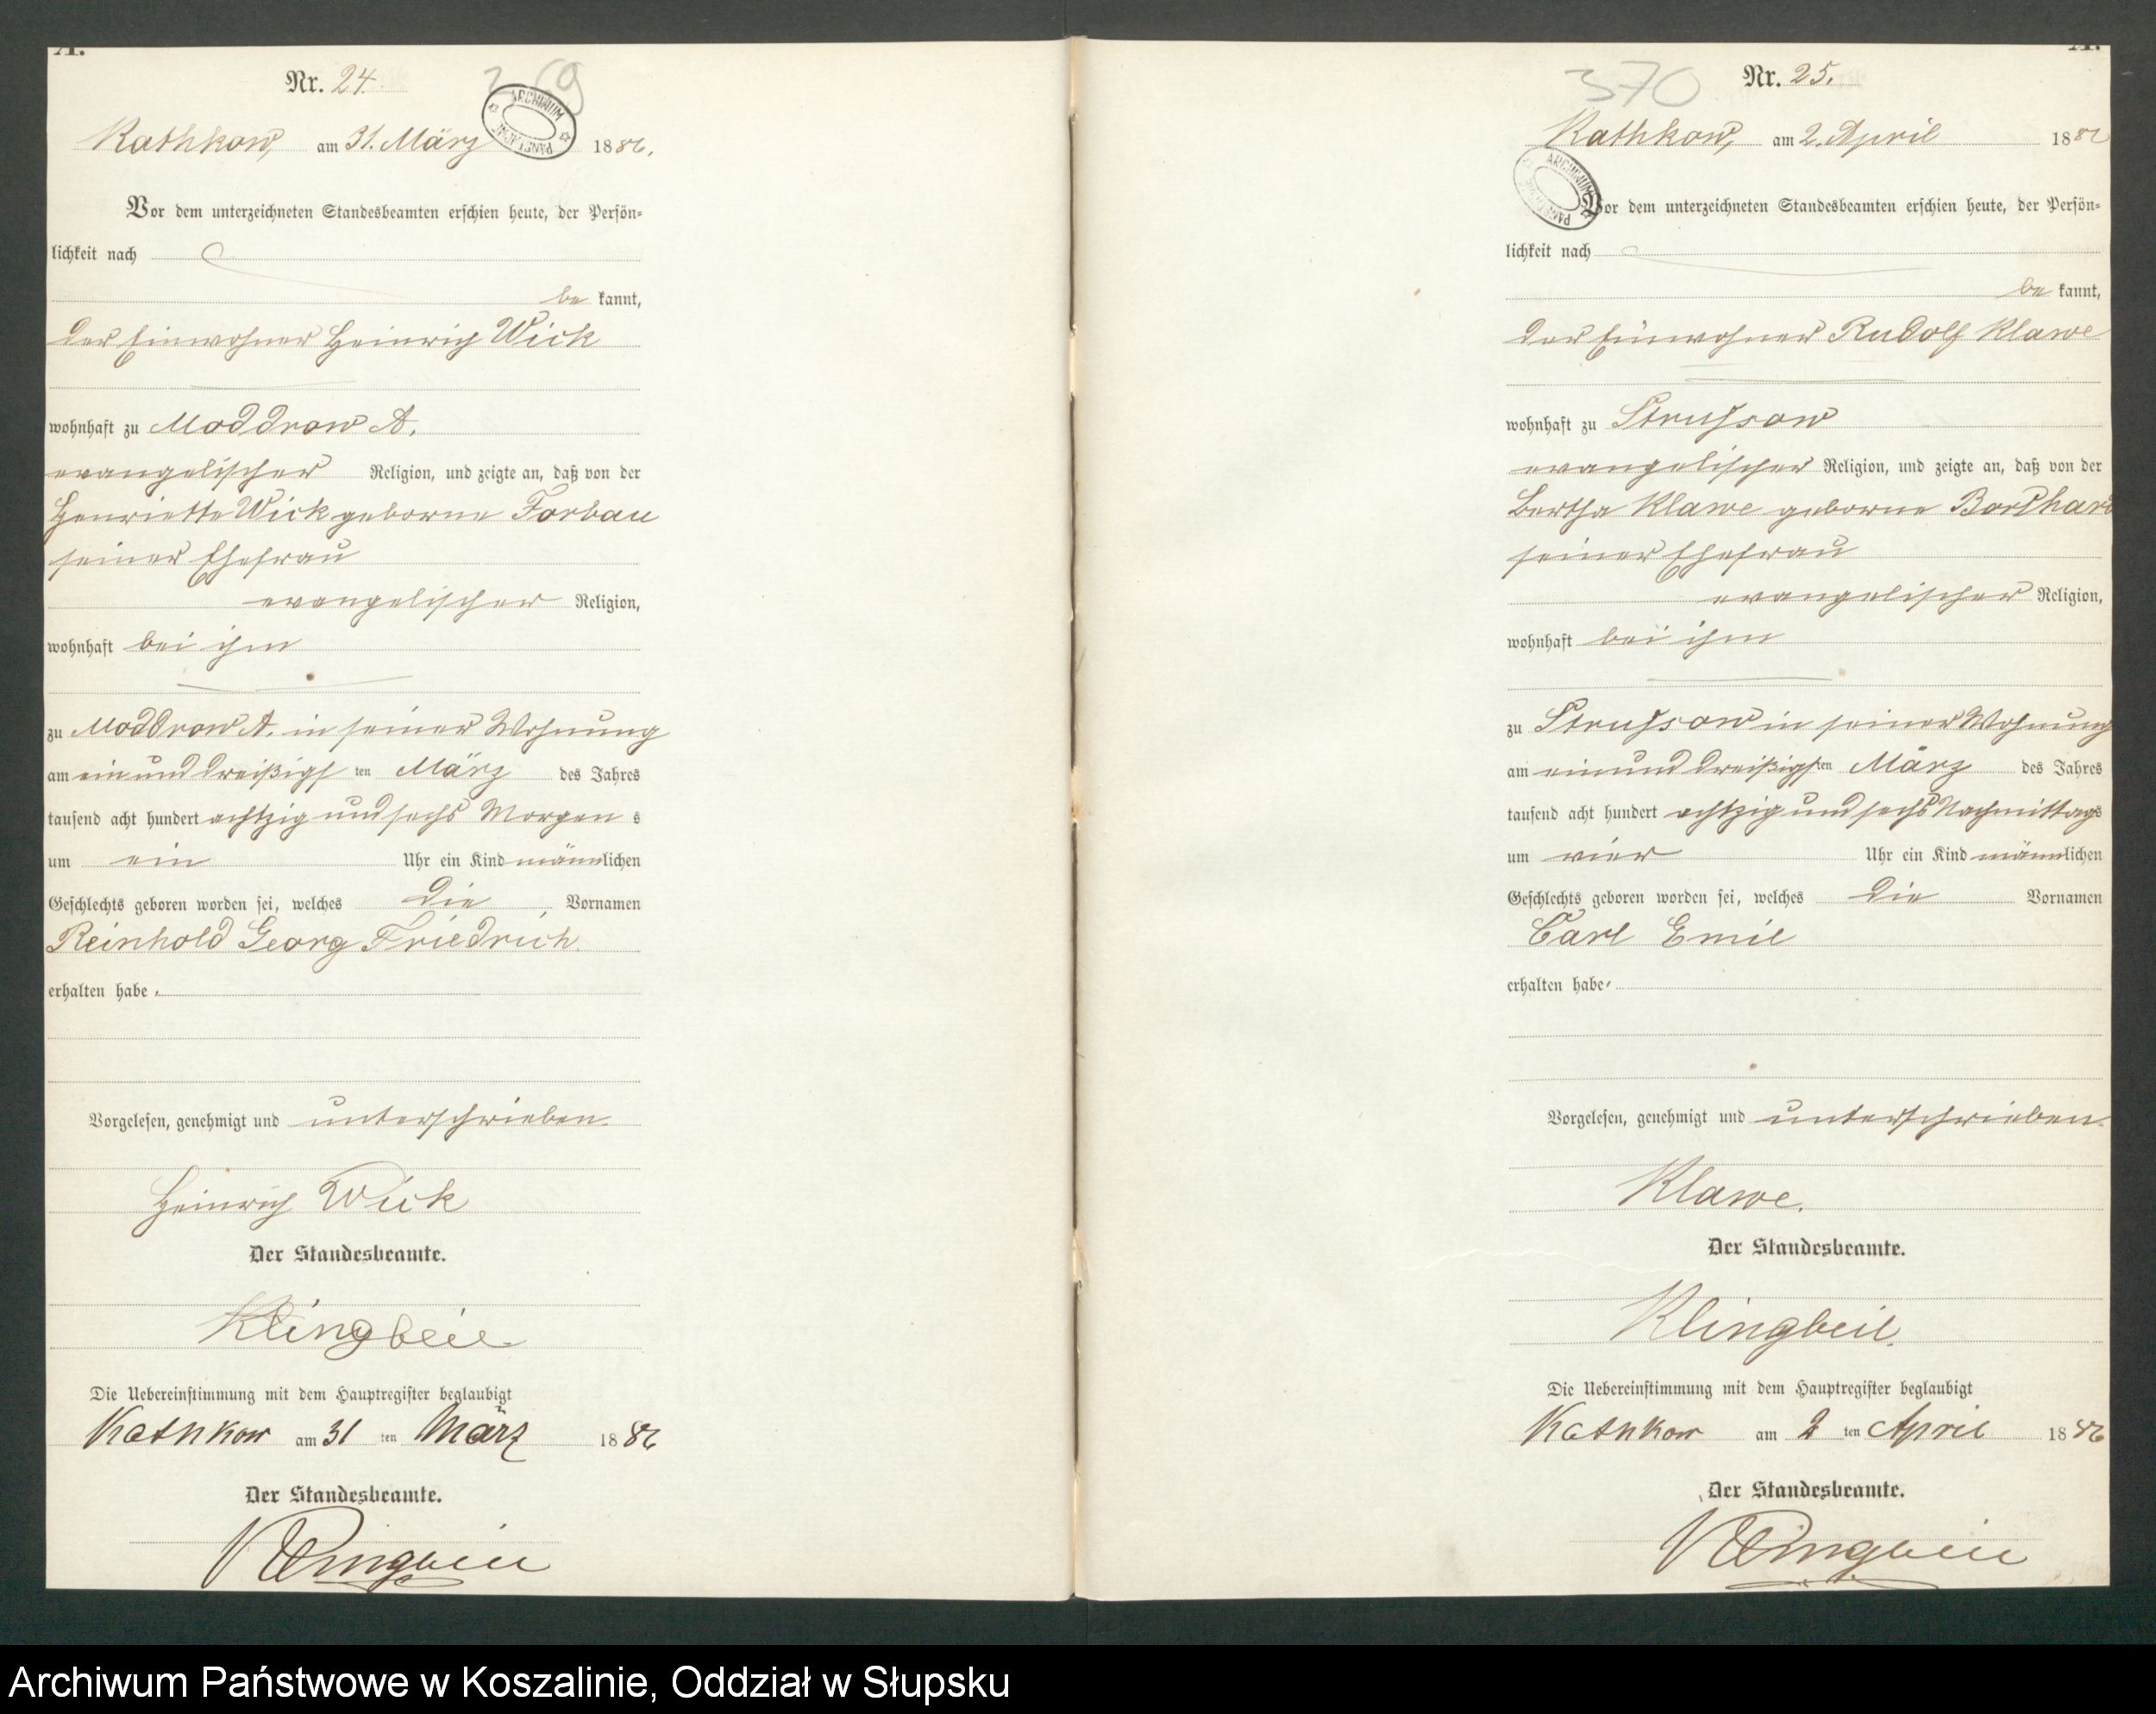 Nr. 24.
Kathkow, am 31. März 1886.
ARCHIWUM
Vor dem unterzeichneten Standesbeamten erschien heute, der Persön-
lichkeit nach
be kannt,
der Einwohner Heinrich Wick
wohnhaft zu Moddrow A.
evangelischer Religion, und zeigte an, daß von der
Henriette Wick geborne Forbau
seiner Ehefrau
evangelischer Religion,
wohnhaft bei ihm
zu Moddrow A. in seiner Wohnung
am ein und dreißigsten März des Jahres
tausend acht hundert achtzig und sechs Morgens
um ein Uhr ein Kind männlichen
Geschlechts geboren worden sei, welches die Vornamen
Reinhold Georg Friedrich
erhalten habe.
Vorgelesen, genehmigt und unterschrieben.
Heinrich Wick
Der Standesbeamte.
Klingbeil
Die Uebereinstimmung mit dem Hauptregister beglaubigt
Kathkow am 31 ten März 1886
Der Standesbeamte.
Klingbeil
370
Nr. 25.
Kathkow, am 2. April 1886
ARCHIWUM
Vor dem unterzeichneten Standesbeamten erschien heute, der Persön-
lichkeit nach
be kannt,
der Einwohner Rudolf Klawe
wohnhaft zu Strussow
evangelischer Religion, und zeigte an, daß von der
Bertha Klawe geborne
seiner Ehefrau
evangelischer Religion,
wohnhaft bei ihm
zu Strussow in seiner Wohnung
am ein und dreißigsten März des Jahres
tausend acht hundert achtzig und sechs Nachmittags
um vier Uhr ein Kind männlichen
Geschlechts geboren worden sei, welches die Vornamen
Carl Emil
erhalten habe.
Vorgelesen, genehmigt und unterschrieben.
Klawe.
Der Standesbeamte.
Klingbeil.
Die Uebereinstimmung mit dem Hauptregister beglaubigt
Kathkow am 2 ten April 1886
Der Standesbeamte.
Klingbeil
Archiwum Państwowe w Koszalinie, Oddział w Słupsku